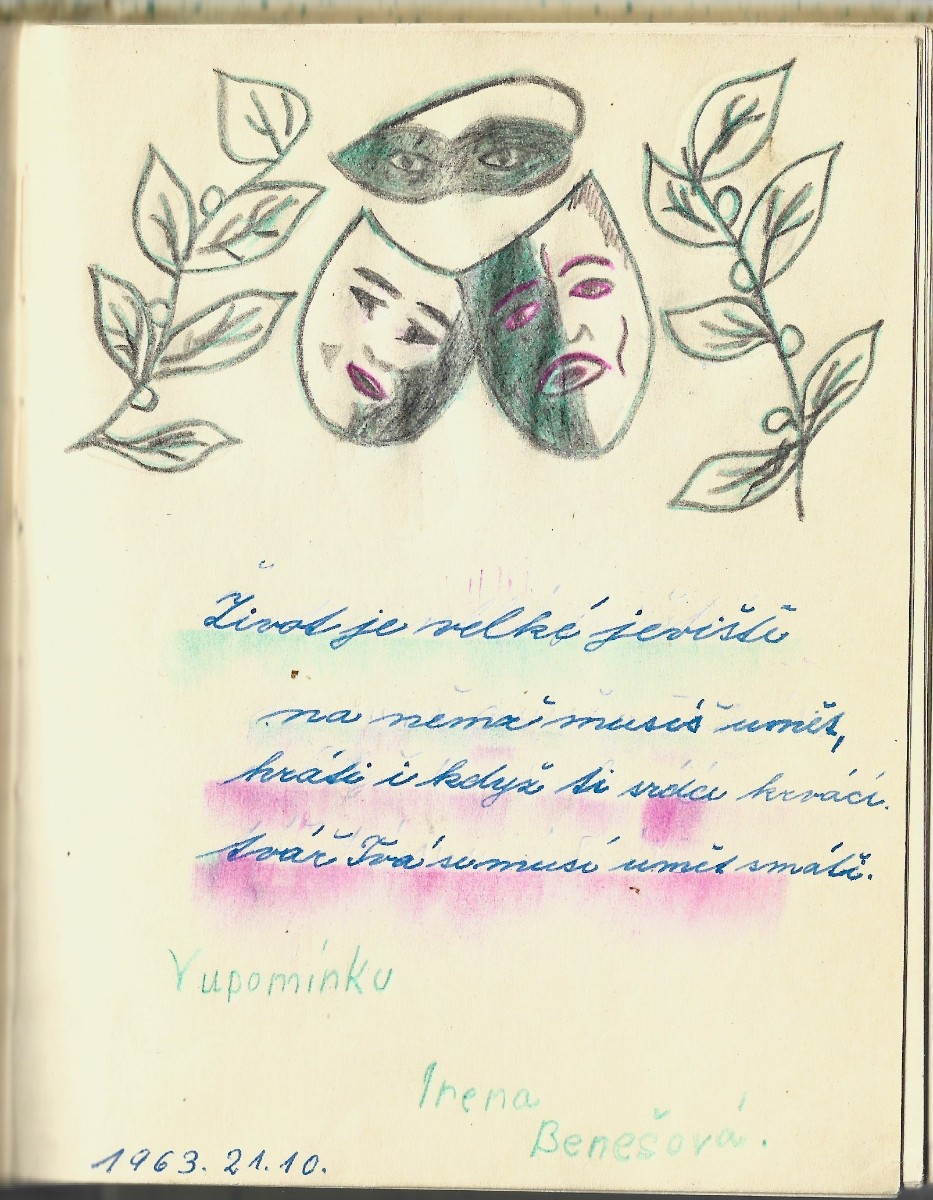 Život je velké jeviště
na němž musíš umět,
hráti i když ti srdce krvácí.
tvář Tvá se musí umět smáti.
Vupomínku
Irena
Benešová.
1963. 21.10.